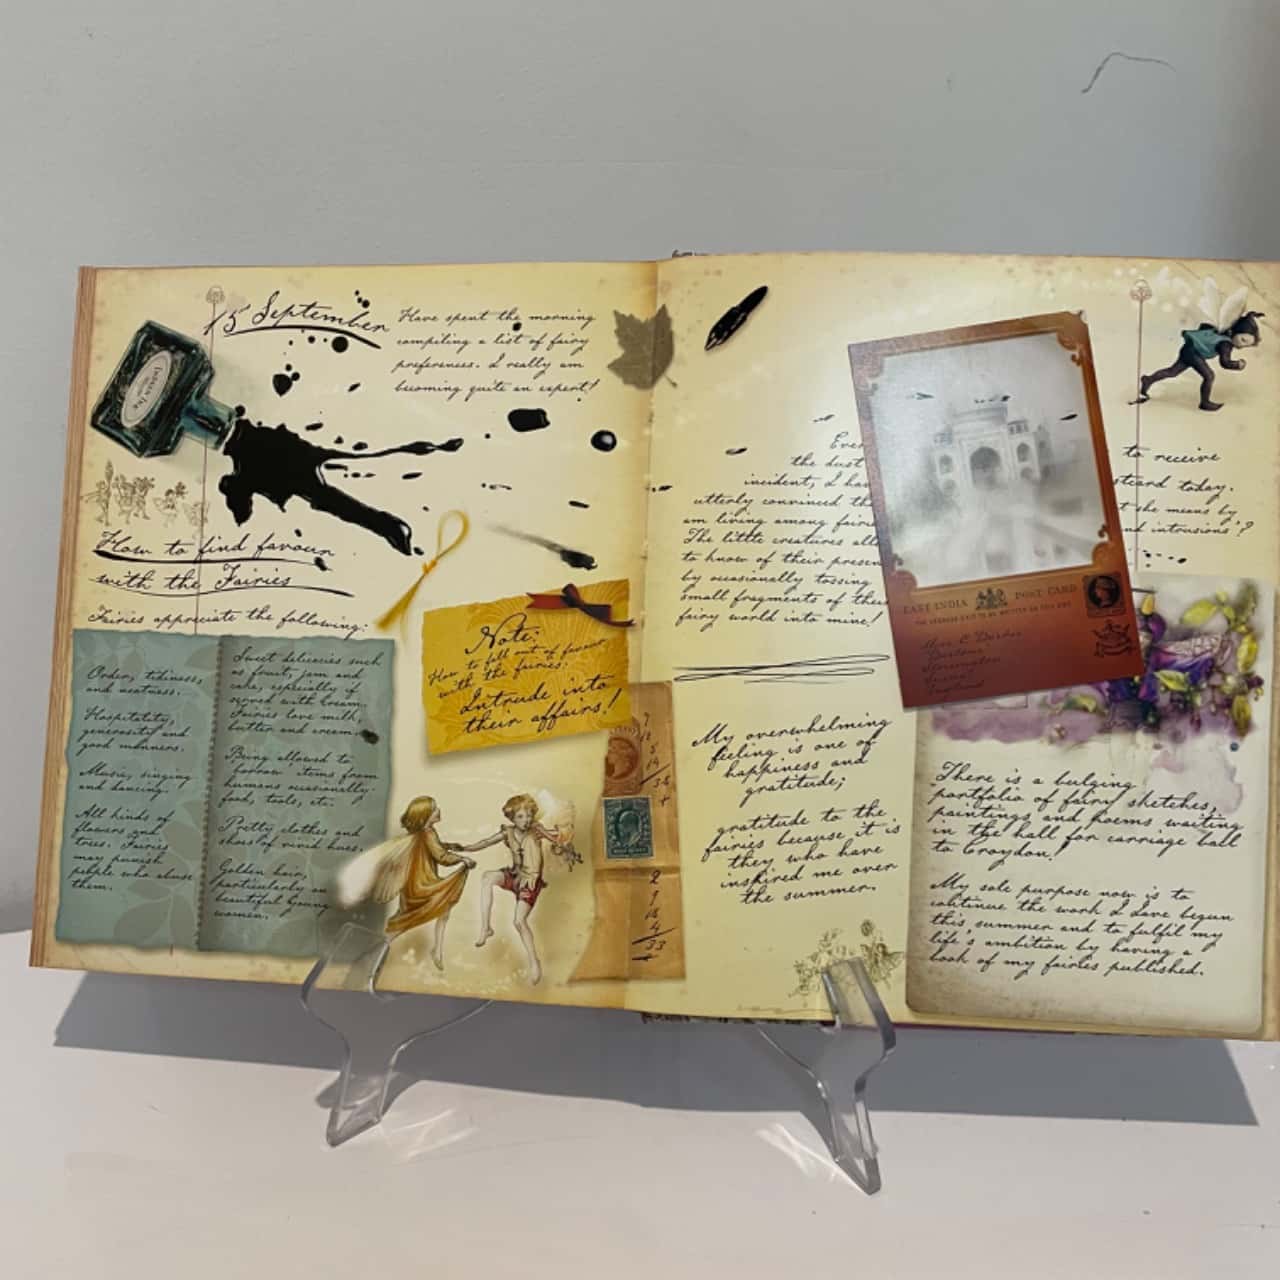 15 September
Have spent the morning
compiling a list of fairy
preferences. I really am
becoming quite an expert!
How to find favour
with the Fairies
Fairies appreciate the following:
Order, tidiness,
and neatness.
Hospitality,
generosity and
good manners.
Music, singing
and dancing.
All kinds of
flowers and
trees. Fairies
may punish
people who abuse
them.
Sweet delicacies such
as fruit, jam and
cake, especially if
served with cream.
Fairies love milk,
butter and cream.
Being allowed to
borrow items from
humans occasionally-
food, tools, etc.
Pretty clothes and
shoes of vivid hues.
Golden hair,
particularly on
beautiful young
women.
Note:
How to fall out of favour
with the fairies:
Intrude into
their affairs!
2
9
18
4
33
the dust
incident, I have
utterly convinced
am living among
The little creatures
to know of their
by occasionally tossing
small fragments of their
fairy world into mine!
My overwhelming
feeling is one of
happiness and
gratitude;
gratitude to the
fairies because it is
they who have
inspired me over
the summer.
EAST INDIA POST CARD
THE ADDRESS ONLY TO BE WRITTEN ON THIS SIDE
England
to receive
today.
she means by
intrusions'?
There is a bulging
portfolio of fairy sketches,
paintings and poems waiting
in the hall for carriage
to Croydon!
My sole purpose now is to
continue the work I have begun
this summer and to fulfil my
life's ambition by having a
book of my fairies published.